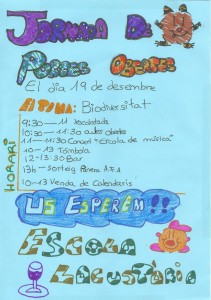 JORNADA DE
PORTES OBERTES
El dia 19 de desembre
EL TEMA: Biodiversitat
HORARI
9:30 — 11 xocolatada
10:30 — 11:30 aules obertes
11—11:30 Concert "Escola de música"
10 — 13 Tómbola
12-13:30 Bar
13h — sorteig Panera A.P.A
10-13 Venda de Calendaris
US ESPEREM!!
ESCOLA
LACUSTÀRIA